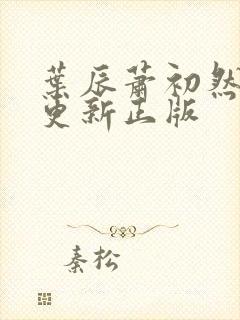 葉辰蕭初然
更新正版
秦松